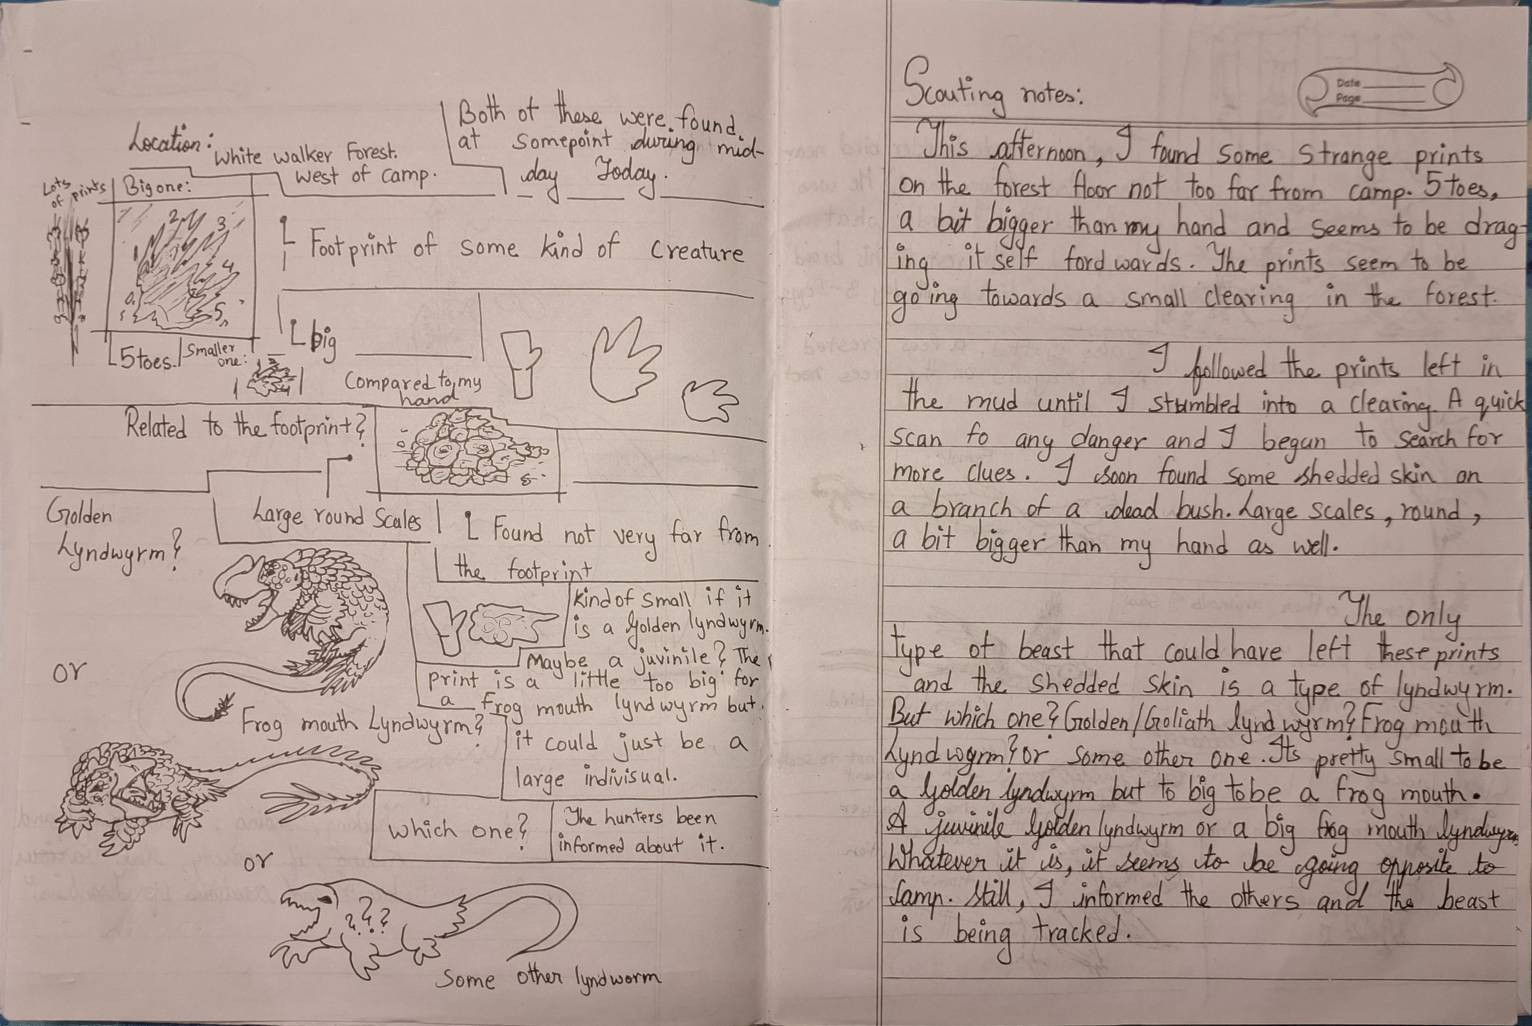 Location: White walker Forest.
West of camp.
Both of these were found
at somepoint during mid-
day Today.
Lots
of prints
Big one:
2
3
4
5
Footprint of some kind of creature
big
5toes.
Smaller
one:
Compared to my
hand
Related to the footprint?
Large round Scales
Found not very far from
the footprint
Golden
Lyndwyrm?
Kind of small if it
is a golden lyndwyrm.
Maybe a juvinile? The
print is a little too big for
a frog mouth lyndwyrm but
it could just be a
large indivisual.
or
Frog mouth Lyndwyrm?
Which one?
The hunters been
informed about it.
or
???
Some other lyndworm
Date
Page
Scouting notes:
This afternoon, I found some strange prints
on the forest floor not too far from camp. 5toes,
a bit bigger than my hand and seems to be drag-
ing it self fordwards. The prints seem to be
going towards a small clearing in the forest.
I followed the prints left in
the mud until I stumbled into a clearing. A quick
scan fo any danger and I began to search for
more clues. I soon found some shedded skin on
a branch of a dead bush. Large scales, round,
a bit bigger than my hand as well.
The only
type of beast that could have left these prints
and the shedded skin is a type of lyndwyrm.
But which one? Golden/Goliath lyndwyrm? Frog mouth
Lyndwyrm? or some other one. Its pretty small to be
a golden lyndwyrm but to big to be a frog mouth.
A juvinile golden lyndwyrm or a big frog mouth lyndwyrm.
Whatever it is, it seems to be going opposite to
camp. Still, I informed the others and the beast
is being tracked.